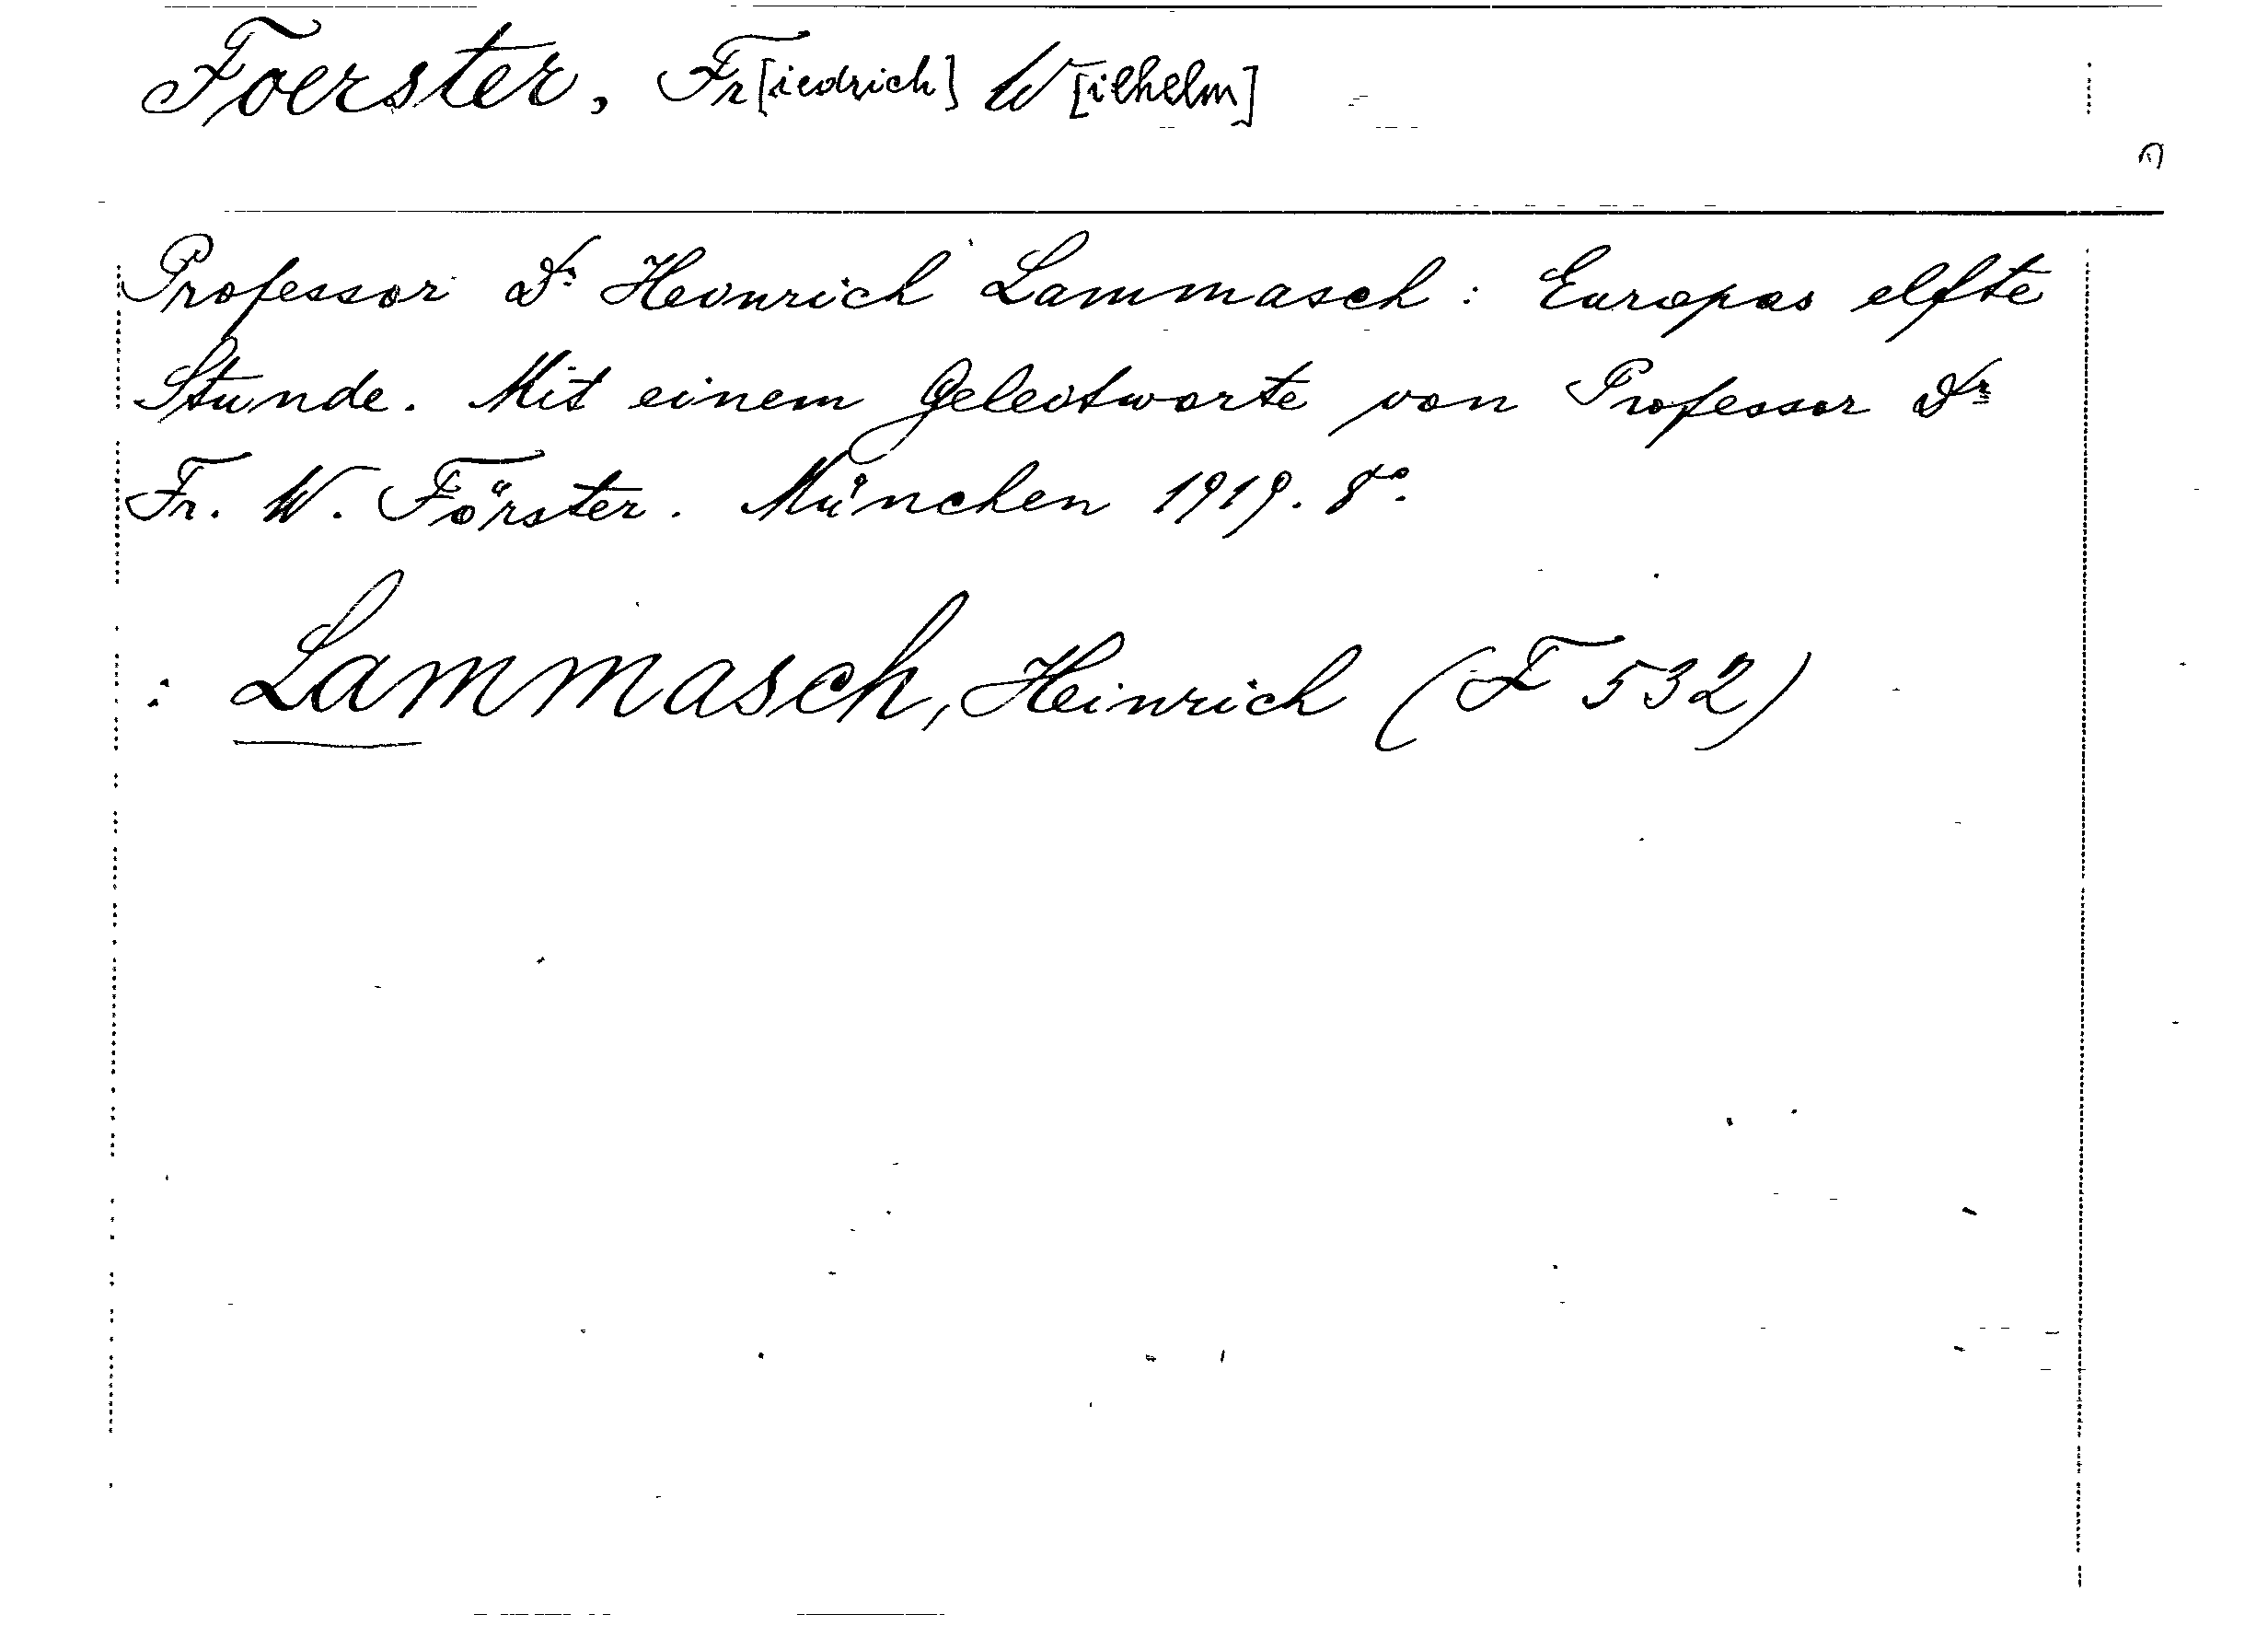 Foerster, Fr[iedrich] W[ilhelm]
Professor Dr Heinrich Lammasch: Europas elfte
Stunde. Mit einem Geleitworte von Professor Dr
Fr. W. Förster. München 1919. 8°.
: Lammasch, Heinrich (F 532)